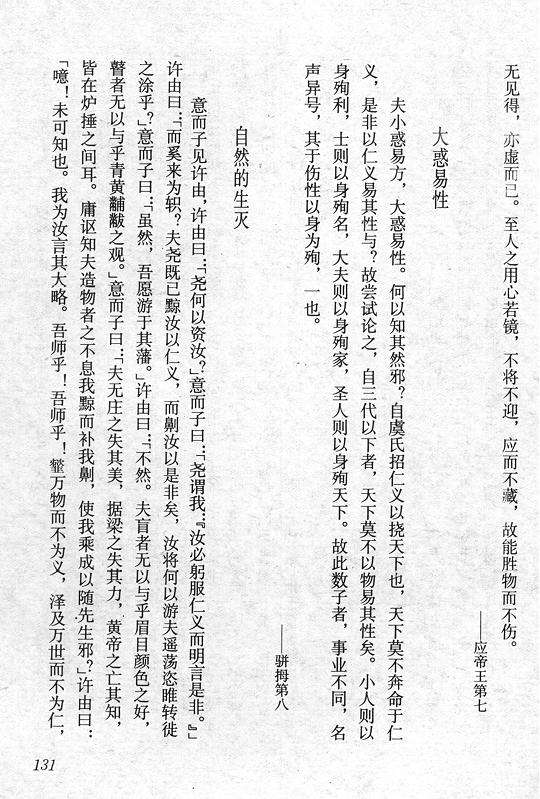 无见得，亦虚而已。至人之用心若镜，不将不迎，应而不藏，故能胜物而不伤。
——应帝王第七
大惑易性
夫小惑易方，大惑易性。何以知其然邪？自虞氏招仁义以挠天下也，天下莫不奔命于仁
义，是非以仁义易其性与？故尝试论之，自三代以下者，天下莫不以物易其性矣。小人则以
身殉利，士则以身殉名，大夫则以身殉家，圣人则以身殉天下。故此数子者，事业不同，名
声异号，其于伤性以身为殉，一也。
——骈拇第八
自然的生灭
意而子见许由，许由曰：「尧何以资汝？」意而子曰：「尧谓我：『汝必躬服仁义而明言是非。』」
许由曰：「而奚来为轵？夫尧既已黥汝以仁义，而劓汝以是非矣，汝将何以游夫遥荡恣睢转徙
之涂乎？」意而子曰：「虽然，吾愿游于其藩。」许由曰：「不然。夫盲者无以与乎眉目颜色之好，
瞽者无以与乎青黄黼黻之观。」意而子曰：「夫无庄之失其美，据梁之失其力，黄帝之亡其知，
皆在炉捶之间耳。庸讵知夫造物者之不息我黥而补我劓，使我乘成以随先生邪？」许由曰：
「噫！未可知也。我为汝言其大略。吾师乎！吾师乎！䪠万物而不为义，泽及万世而不为仁，
131